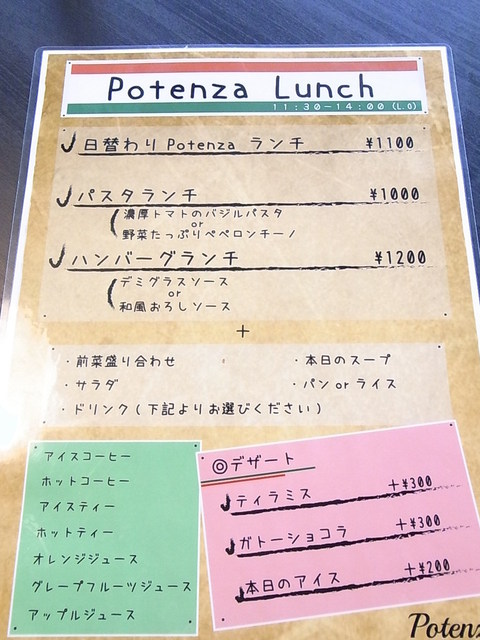 Potenza Lunch
11:30-14:00(L.O)
日替わり Potenza ランチ ¥1100
パスタランチ ¥1000
濃厚トマトのバジルパスタ
or
野菜たっぷりペペロンチーノ
ハンバーグランチ ¥1200
デミグラスソース
or
和風おろしソース
+
・前菜盛り合わせ ・本日のスープ
・サラダ ・パン or ライス
・ドリンク(下記よりお選びください)
アイスコーヒー
ホットコーヒー
アイスティー
ホットティー
オレンジジュース
グレープフルーツジュース
アップルジュース
◎デザート
ティラミス +¥300
ガトーショコラ +¥300
本日のアイス +¥200
Poten